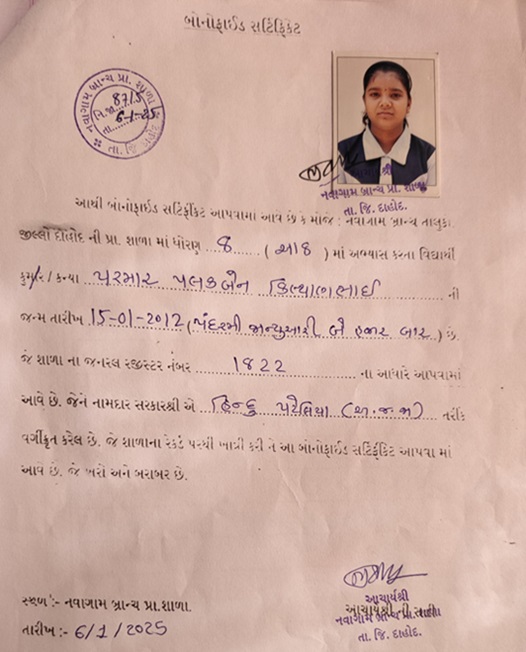 બોનોફાઈડ સર્ટિફિકેટ
નવાગામ બ્રાન્ચ પ્રા. શાળા
નિ.જા. 87/5
તા. 6-1-25
તા. જિ. દાહોદ
આચાર્યશ્રી
નવાગામ બ્રાન્ચ પ્રા. શાળા
તા. જિ. દાહોદ.
આથી બોનોફાઈડ સર્ટિફીકેટ આપવામાં આવે છે કે મોજે : નવાગામ બ્રાન્ચ તાલુકા
જીલ્લો દાહોદ ની પ્રા. શાળા માં ધોરણ 8 ( આઠ ) માં અભ્યાસ કરતા વિદ્યાર્થી
કુમાર / કન્યા પરમાર પલકબેન ની
જન્મ તારીખ 15-01-2012 (પંદરમી જાન્યુઆરી બે હજાર બાર) છે.
જે શાળા ના જનરલ રજીસ્ટર નંબર 1822 ના આધારે આપવામાં
આવે છે. જેને નામદાર સરકારશ્રી એ હિન્દુ (અ.જ.જા) તરીકે
વર્ગીકૃત કરેલ છે. જે શાળાના રેકર્ડ પરથી ખાત્રી કરી ને આ બોનોફાઈડ સર્ટિફીકેટ આપવા માં
આવે છે. જે ખરો અને બરાબર છે.
સ્થળ :- નવાગામ બ્રાન્ચ પ્રા.શાળા.
તારીખ :- 6/1/2025
આચાર્યશ્રી
આચાર્યશ્રી ની સહી
નવાગામ બ્રાન્ચ પ્રા. શાળા
તા. જિ. દાહોદ.